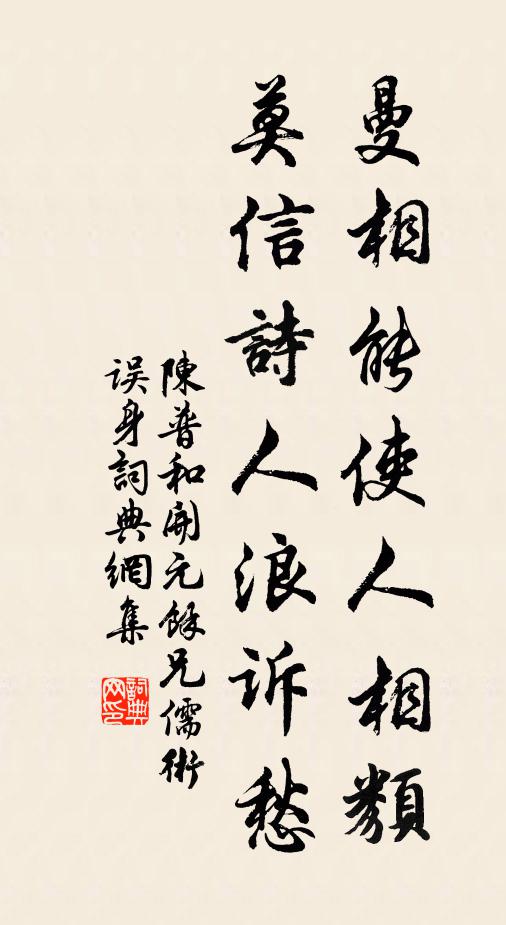 曼相能使人相類
莫信詩人浪訴愁
陳普和開元餘兄儒術
误身詞典網集
詞典网印